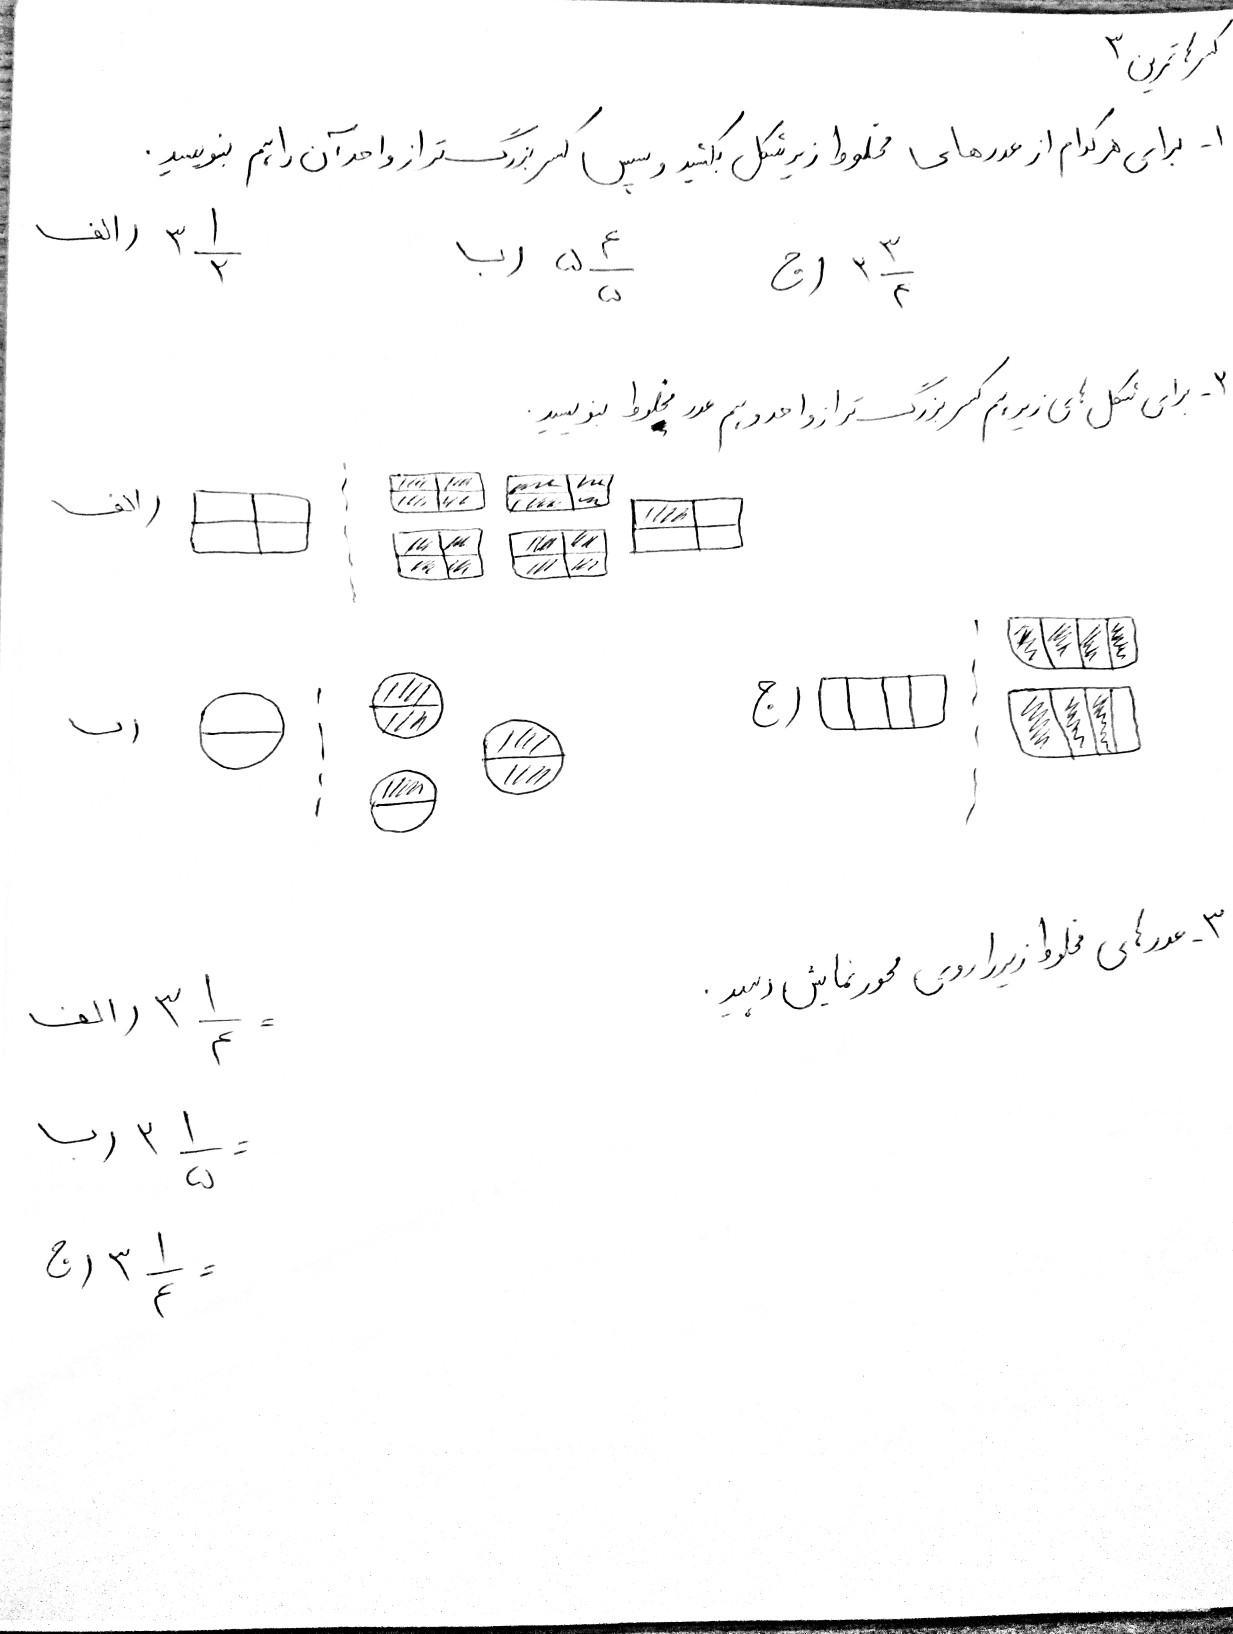 کسرها تمرین ۳
۱- برای هرکدام از عددهای مخلوط زیر شکل بکشید و سپس کسر بزرگ‌تر از واحد آن را هم بنویسید.
الف) ۳ ۱/۲ ب) ۵ ۴/۵ ج) ۲ ۳/۴
۲- برای شکل‌های زیر هم کسر بزرگ‌تر از واحد و هم عدد مخلوط بنویسید.
الف)
ب) ج)
۳- عددهای مخلوط زیر را روی محور نمایش دهید.
الف) ۳ ۱/۴ =
ب) ۲ ۱/۵ =
ج) ۳ ۱/۴ =